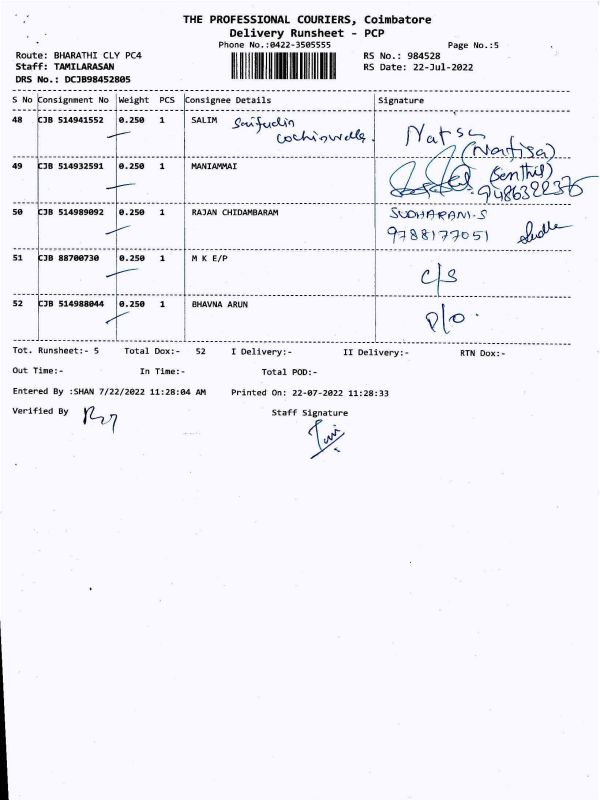 THE PROFESSIONAL COURIERS, Coimbatore
Delivery Runsheet - PCP
Phone No.:0422-3505555 Page No.:5
Route: BHARATHI CLY PC4 RS No.: 984528
Staff: TAMILARASAN RS Date: 22-Jul-2022
DRS No.: DCJB98452805
S No Consignment No Weight PCS Consignee Details Signature
48 CJB 514941552 0.250 1 SALIM Saifudin
(Nafisa)
49 CJB 514932591 0.250 1 MANIAMMAI (Senthil)
9486322376
50 CJB 514989092 0.250 1 RAJAN CHIDAMBARAM SUDHARANI.S
9788177051
51 CJB 88700730 0.250 1 M K E/P c/s
52 CJB 514988044 0.250 1 BHAVNA ARUN P/o.
Tot. Runsheet:- 5 Total Dox:- 52 I Delivery:- II Delivery:- RTN Dox:-
Out Time:- In Time:- Total POD:-
Entered By :SHAN 7/22/2022 11:28:04 AM Printed On: 22-07-2022 11:28:33
Verified By Staff Signature